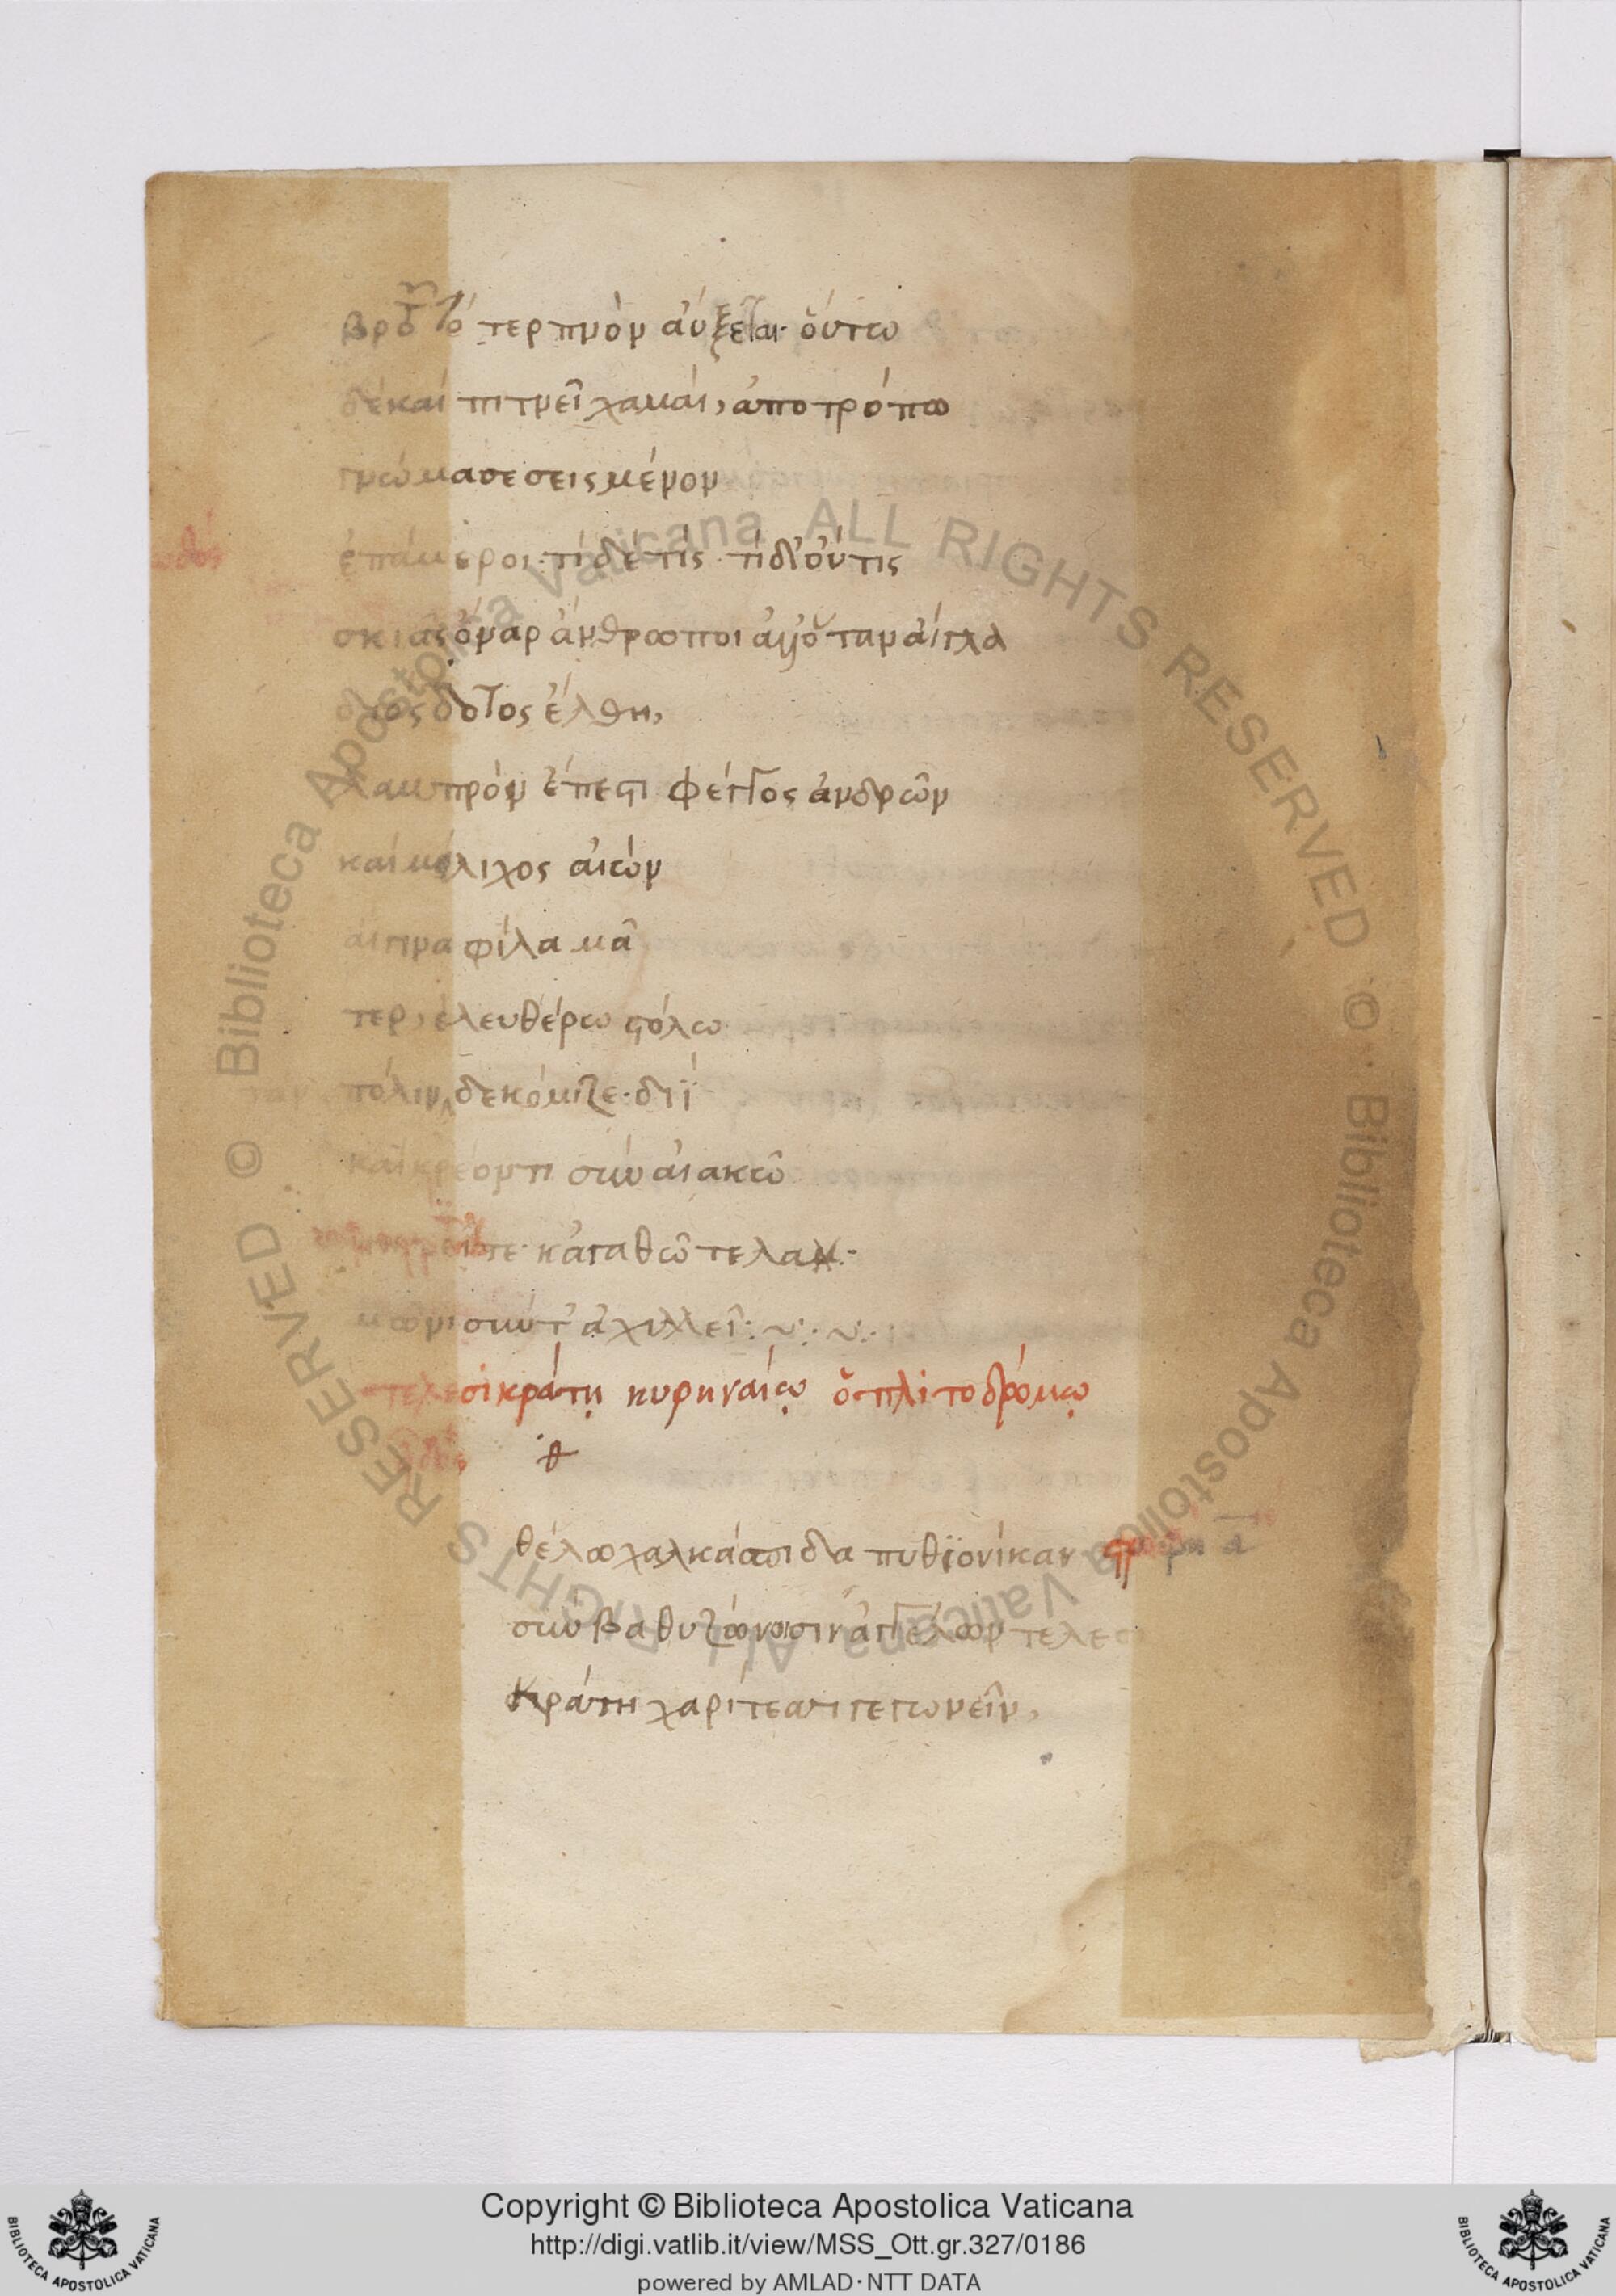 βροτῶν τὸ τερπνὸν ἀύξεται· ὅυτω
δὲ καὶ πιτνεῖ χαμάι, ἀποτρόπω
γνώμα σεσεισμένον
ἐπάμεροι· τί δέ τις· τί δ' ὄυτις
σκιᾶς ὄναρ ἄνθρωποι ἀλλ' ὅταν ἄιγλα
διὸς δοτος ἔλθη,
λαμπρὸν ἔπεστι φέγγος ἀνδρῶν
καὶ μείλιχος αἰών
άιγινα φίλα μᾶ
τερ, ἐλευθέρω στόλω
πόλιν δε κόμιζε· διῒ
καὶ κρέοντι σὺν αἰακῶ
τε κἀγαθῶ τελα
μῶνι σύν τ' ἀχιλλεῖ:~:~:
τελεσικράτῃ κυρηναίῳ ὁπλιτοδρόμῳ
ᾠδὸς
θέλω χαλκάσπιδα πυθϊονίκαν
σὺν βαθυζώνοισιν ἀγγέλων τελεσ
κράτη χαρίτεσσι γεγωνεῖν,
© Biblioteca Apostolica Vaticana ALL RIGHTS RESERVED © Biblioteca Apostolica Vaticana ALL RIGHTS RESERVED
Copyright © Biblioteca Apostolica Vaticana
http://digi.vatlib.it/view/MSS_Ott.gr.327/0186
powered by AMLAD·NTT DATA
BIBLIOTECA APOSTOLICA VATICANA
BIBLIOTECA APOSTOLICA VATICANA